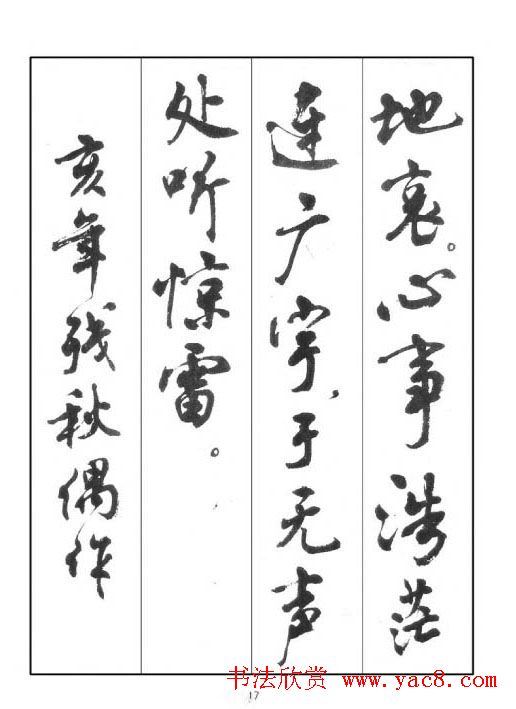 地哀。心事浩茫
连广宇，于无声
处听惊雷。
亥年残秋偶作
书法欣赏 www.yac8.com
17